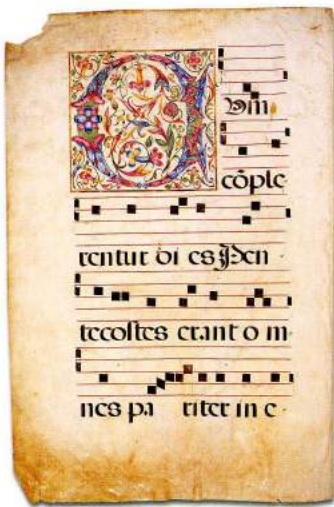 DUm
cōple
rentur di es Pen
tecostes erant o m
nes pa riter in e